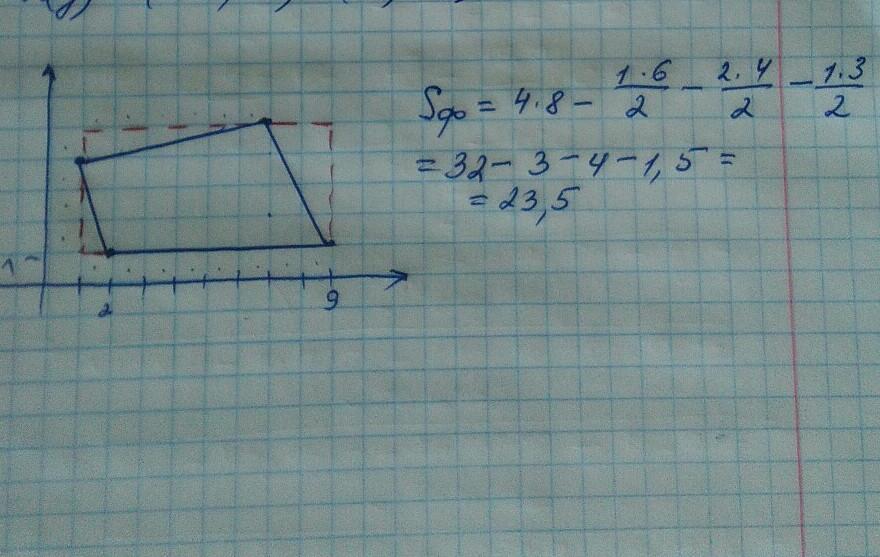 Sф = 4·8 - 1·6/2 - 2·4/2 - 1·3/2
= 32 - 3 - 4 - 1,5 =
= 23,5
1
2 9